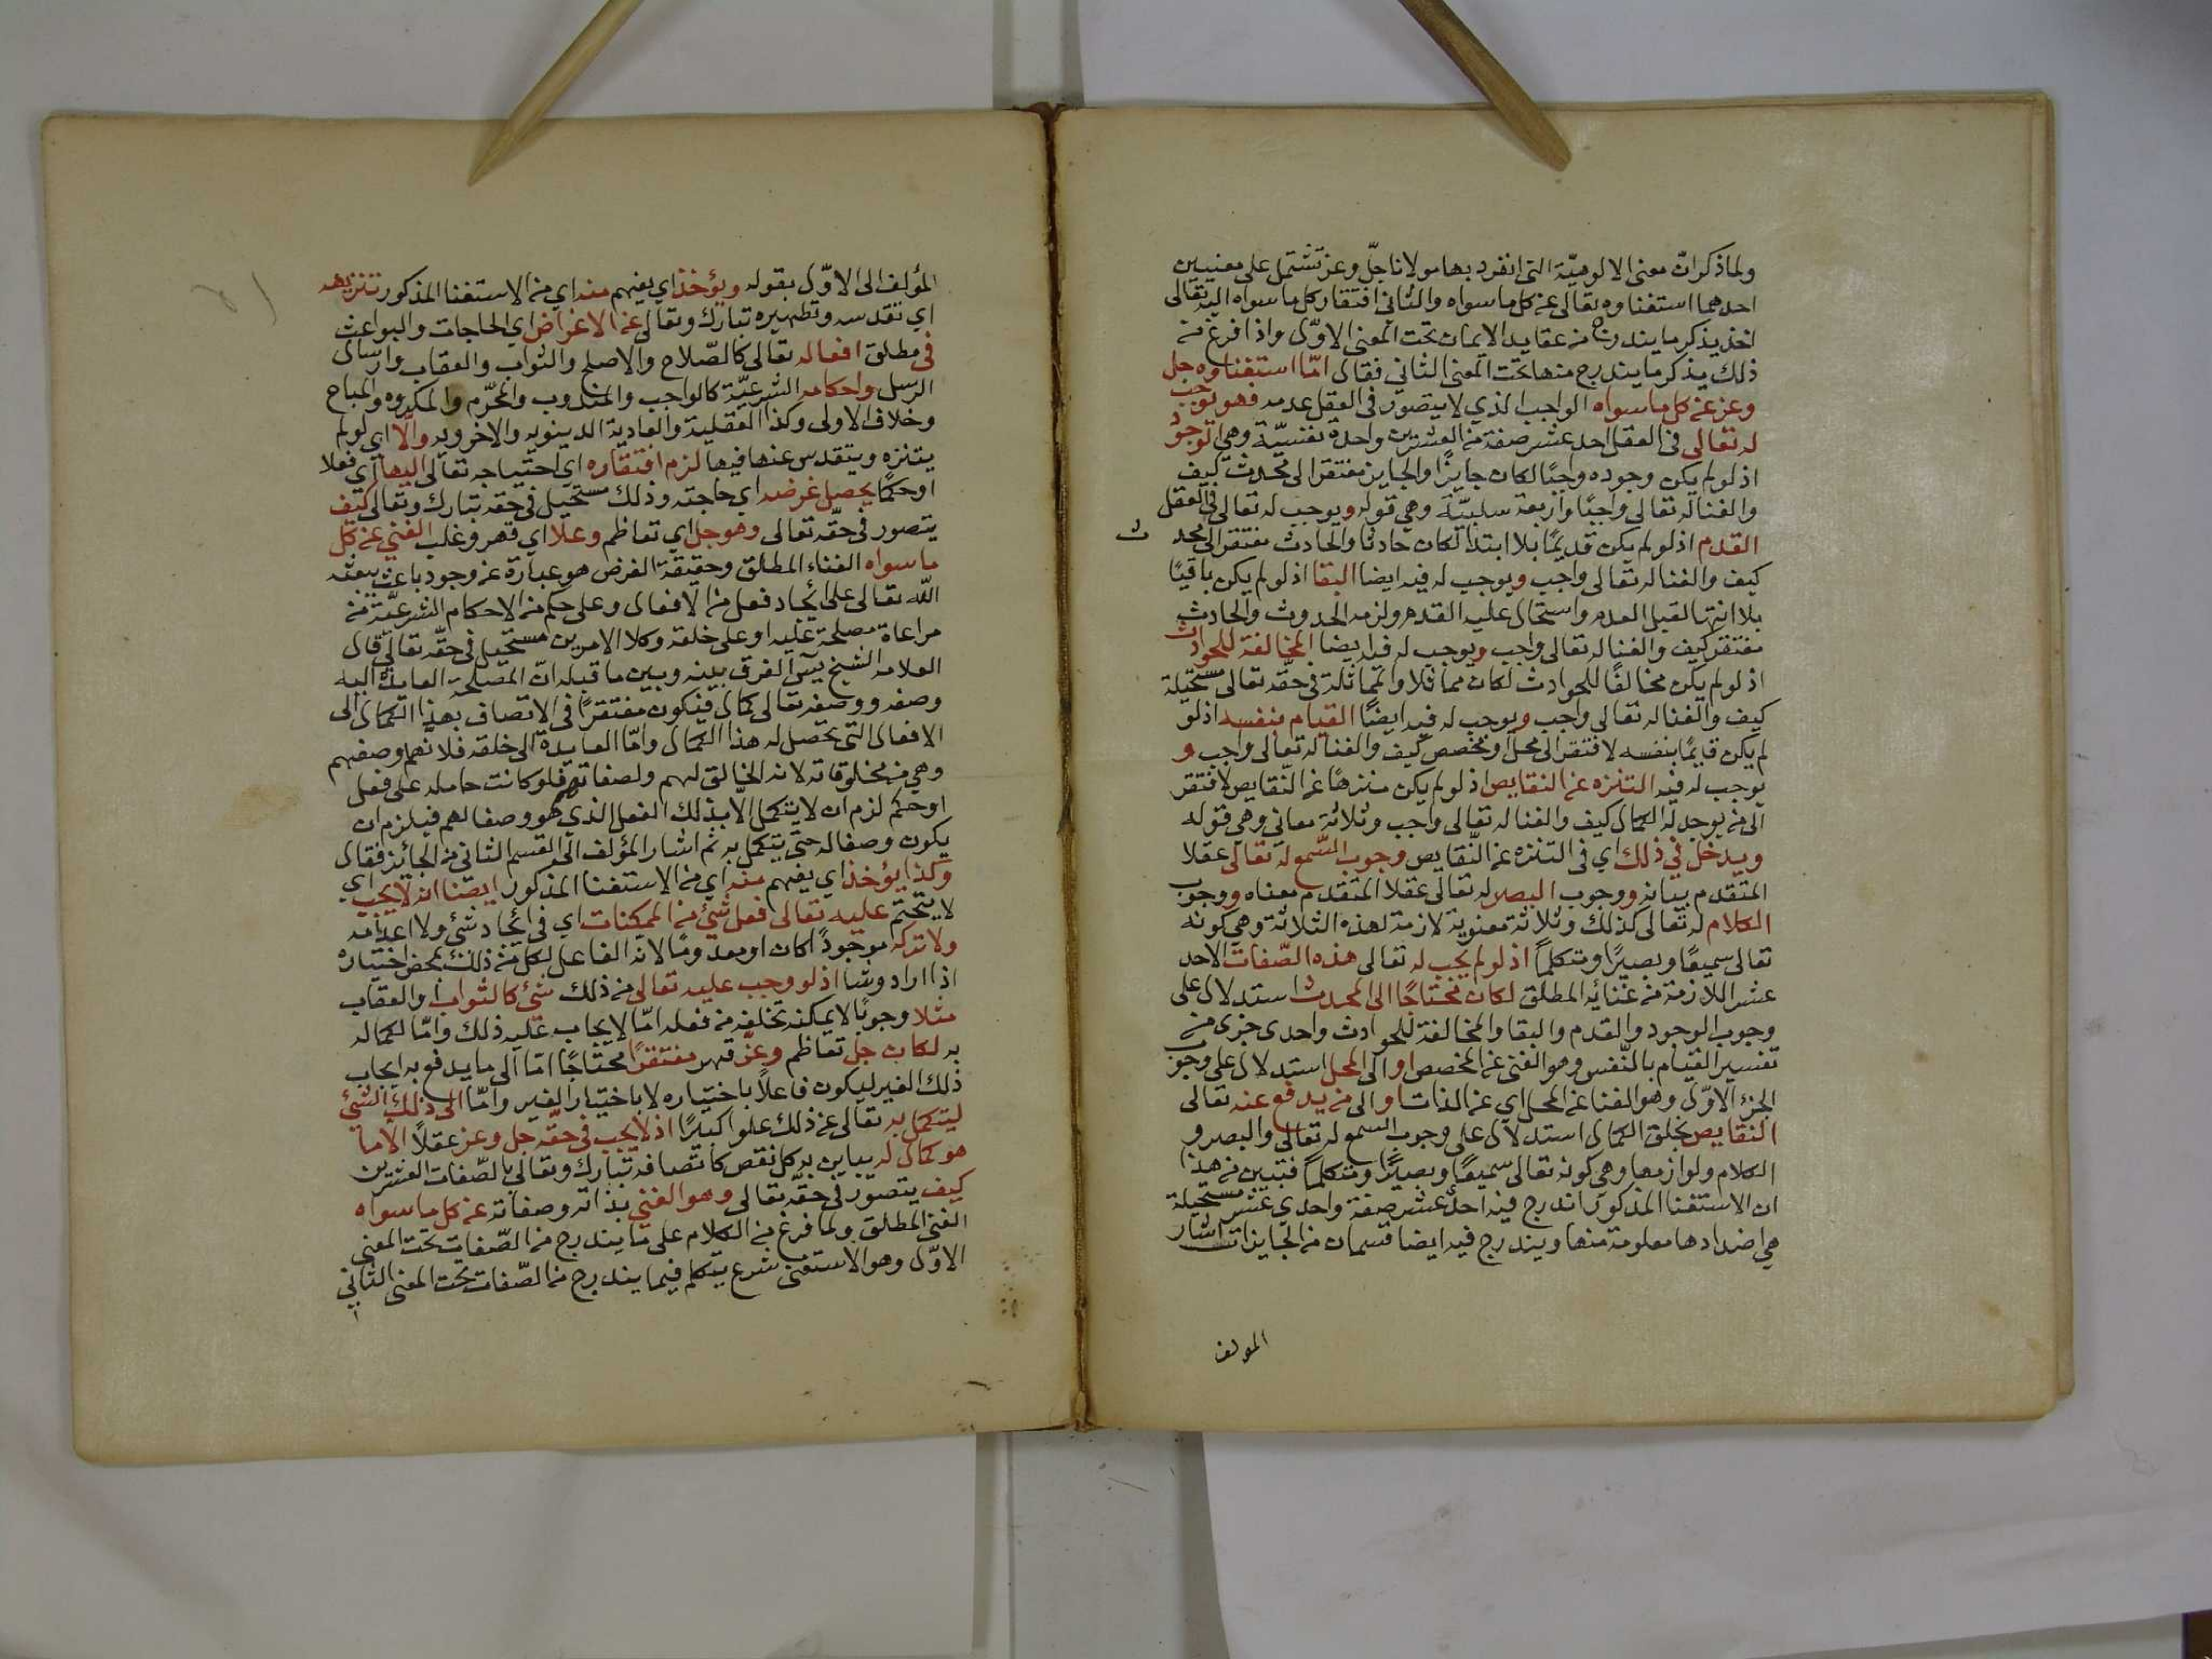 ولما ذكر ان معنى الالوهيّة التى انفرد بها مولانا جلّ وعز تشتمل على معنيين
احدهما استغناوه تعالى عن كل ما سواه والثانى افتقار كل ما سواه اليه تعالى
اخذ يذكر ما يندرج من عقايد الايمان تحت المعنى الاوّل واذا فرغ من
ذلك يذكر ما يندرج منها تحت المعنى الثاني فقال امّا استغناوه جل
وعز عن كل ما سواه الواجب الذي لا يتصور فى العقل عدمه فهو يوجب
له تعالى فى العقل احد عشر صفة من العشرين واحدة نفسيّة وهي الوجود
اذ لو لم يكن وجوده واجبًا لكان جايزًا والجايز مفتقر الى محدث كيف
والغنا له تعالى واجبًا واربعة سلبيّة وهي قوله ويوجب له تعالى فى العقل
القدم اذ لو لم يكن قديمًا بلا ابتدا لكان حادثا والحادث مفتقر الى محد ث
كيف والغنا له تعالى واجب ويوجب له فيه ايضا البقا اذ لو لم يكن باقيًا
بلا انتها لقبل العدم واستحال عليه القدم ولزمه الحدوث والحادث
مفتقر كيف والغنا له تعالى واجب ويوجب له فيه ايضا المخالفة للحوادث
اذ لو لم يكن مخالفًا للحوادث لكان مماثلا والمماثلة في حقّه تعالى مستحيلة
كيف والغنا له تعالى واجب ويوجب له فيه ايضًا القيام بنفسه اذ لو
لم يكن قايمًا بنفسه لافتقر الى محل او مخصص كيف والغنا له تعالى واجب و
يوجب له فيه التنزه عن النقايص اذ لو لم يكن منزهًا عن النقايص لافتقر
الى من يوجد له الكمال كيف والغنا له تعالى واجب وثلاثة معاني وهي قوله
ويدخل في ذلك اي فى التنزه عن النقايص وجوب السّمع له تعالى عقلا
المتقدم بيانه ووجوب البصر له تعالى عقلا المتقدم معناه ووجوب
الكلام له تعالى كذلك وثلاثة معنوية لازمة لهذه الثلاثة وهي كونه
تعالى سميعًا وبصيرًا ومتكلماً اذ لو لم يجب له تعالى هذه الصّفات الاحد
عشر اللازمة من غنائه المطلق لكان محتاجًا الى المحدث استدلال على
وجوب الوجود والقدم والبقا والمخالفة للحوادث واحدى جزى من
تفسير القيام بالنّفس وهو الغنى عن المخصص او الى المحل استدلال على وجوب
الجزء الاوّل وهو الغنا عن المحل اي عن الذات او الى من يدفع عنه تعالى
النقايص بخلق الكمال استدلال على وجوب السمع له تعالى والبصر و
الكلام ولوازمها وهي كونه تعالى سميعًا وبصيرًا ومتكلمًا فتبين من هذا
ان الاستغنا المذكور اندرج فيه احد عشر صفة واحدى عشر مستحيلة
هي اضدادها معلومة منها ويندرج فيه ايضا قسمان من الجايزات اشار
المولف
المؤلف الى الاوّل بقوله ويؤخذ اي يفهم منه اي من الاستغنا المذكور تنزيهه
اي تقدسه وتطهيره تبارك وتعالى عن الاغراض اي الحاجات والبواعث
فى مطلق افعاله تعالى كالصّلاح والاصلح والثواب والعقاب وارسال
الرسل واحكامه الشرعيّة كالواجب والمندوب والمحرّم والمكروه والمباح
وخلاف الاولى وكذا العقلية والعادية الدينويه والاخرويه والّا اي لو لم
يتنزه ويتقدس عنها فيها لزم افتقاره اي احتياجه تعالى اليها اي فعلا
او حكمًا يحصل غرضه اي حاجته وذلك مستحيل في حقه تبارك وتعالى كيف
يتصور فى حقّه تعالى وهو جل اي تعاظم وعلا اي قهر وغلب الغني عن كل
ما سواه الغناء المطلق وحقيقة الغرض هو عبارة عن وجود باعث يبعثه
اللّه تعالى على ايجاد فعل من الافعال وعلى حكم من الاحكام الشرعيّة من
مراعاة مصلحة عليه او على خلقه وكلا الامرين مستحيل فى حقّه تعالى قال
العلامه الشيخ يسٓ الفرق بينه وبين ما قبله انّ المصلحة العايدة اليه
وصفه ووصفه تعالى كمال فيكون مفتقرًا فى الاتصاف بهذا الكمال الى
الافعال التى تحصل له هذا الكمال وامّا العايدة الى خلقه فلانهم وصفهم
وهي من مخلوقاته لانه الخالق لهم ولصفاتهم فلو كانت حامله على فعل
او حكم لزم ان لا يتكمل الّا بذلك الفعل الذي هو وصفا لهم فيلزم ان
يكون وصفا له حتى يتكمل به ثم اشار المؤلف الى القسم الثانى من الجائز فقال
وكذا يؤخذ اي يفهم منه اي من الاستغنا المذكور ايضا انه لا يجب اي
لا يتحتم عليه تعالى فعل شئ من الممكنات اي فى ايجاد شئ ولا اعدامه
ولا تركه موجودًا كان او معدومًا لانه الفاعل لكل من ذلك بمحض اختياره
اذا اراد وشا اذ لو وجب عليه تعالى من ذلك شئ كالثواب والعقاب
مثلا وجوبًا لا يمكنه تخلفه من فعله امّا لايجاب عليه ذلك وامّا لكماله
به لكان جل تعاظم وعزّ قهر مفتقرًا محتاجًا امّا الى ما يدفع به ايجاب
ذلك الغير ليكون فاعلاً باختياره لا باختيار الغير وامّا الى ذلك الشئ
ليتكمل به تعالى عن ذلك علوا كبيرًا اذ لا يجب فى حقّه جل وعز عقلاً الا ما
هو كمال له يباين به كل نقص كاتصافه تبارك وتعالى بالصّفات العشرين
كيف يتصور في حقّه تعالى وهو الغني بذاته وصفاته عن كل ما سواه
الغنى المطلق ولما فرغ من الكلام على ما يندرج من الصّفات تحت المعنى
الاوّل وهو الاستغنى شرع يتكلم فيما يندرج من الصّفات تحت المعنى الثاني